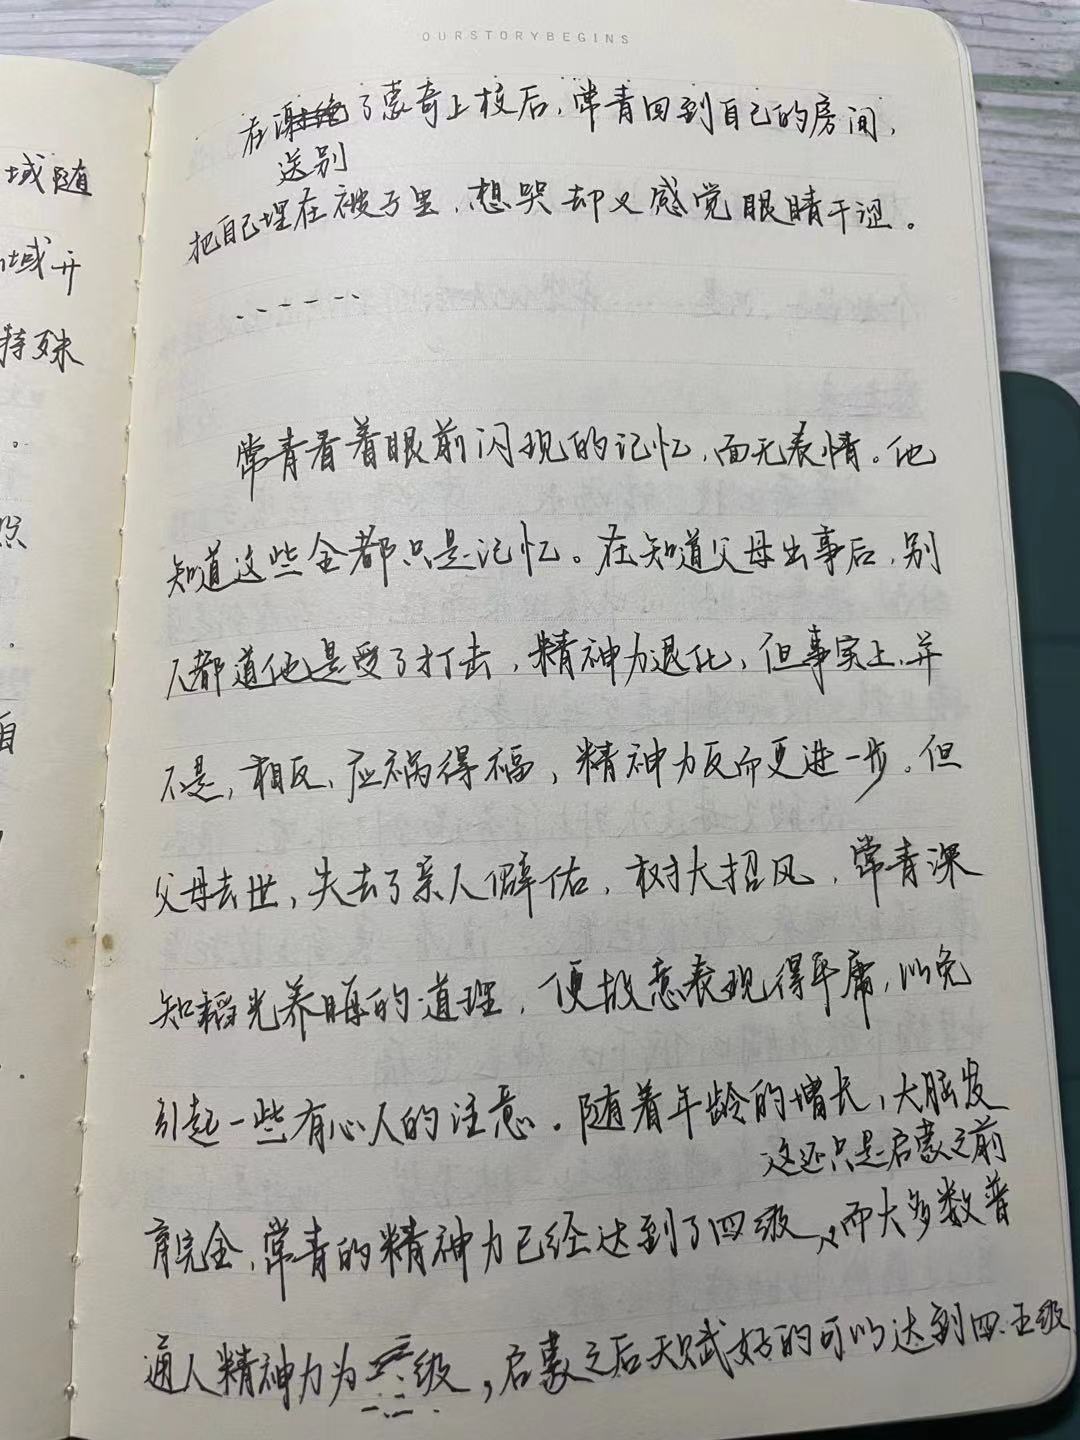 OURSTORYBEGINS
在谢绝了蒙奇上校后，常青回到自己的房间，
送别
把自己埋在被子里，想哭却又感觉眼睛干涩。
……
常青看着眼前闪现的记忆，面无表情。他
知道这些全都只是记忆。在知道父母出事后，别
人都道他是受了打击，精神力退化，但事实上，并
不是，相反，应祸得福，精神力反而更进一步。但
父母去世，失去了亲人僻佑，树大招风，常青深
知韬光养晦的道理，便故意表现得平庸，以免
引起一些有心人的注意。随着年龄的增长，大脑发
这还只是启蒙之前
育完全，常青的精神力已经达到了四级，而大多数普
通人精神力为级，启蒙之后天赋好的可以达到四.五级
一.二
域随
域开
特殊